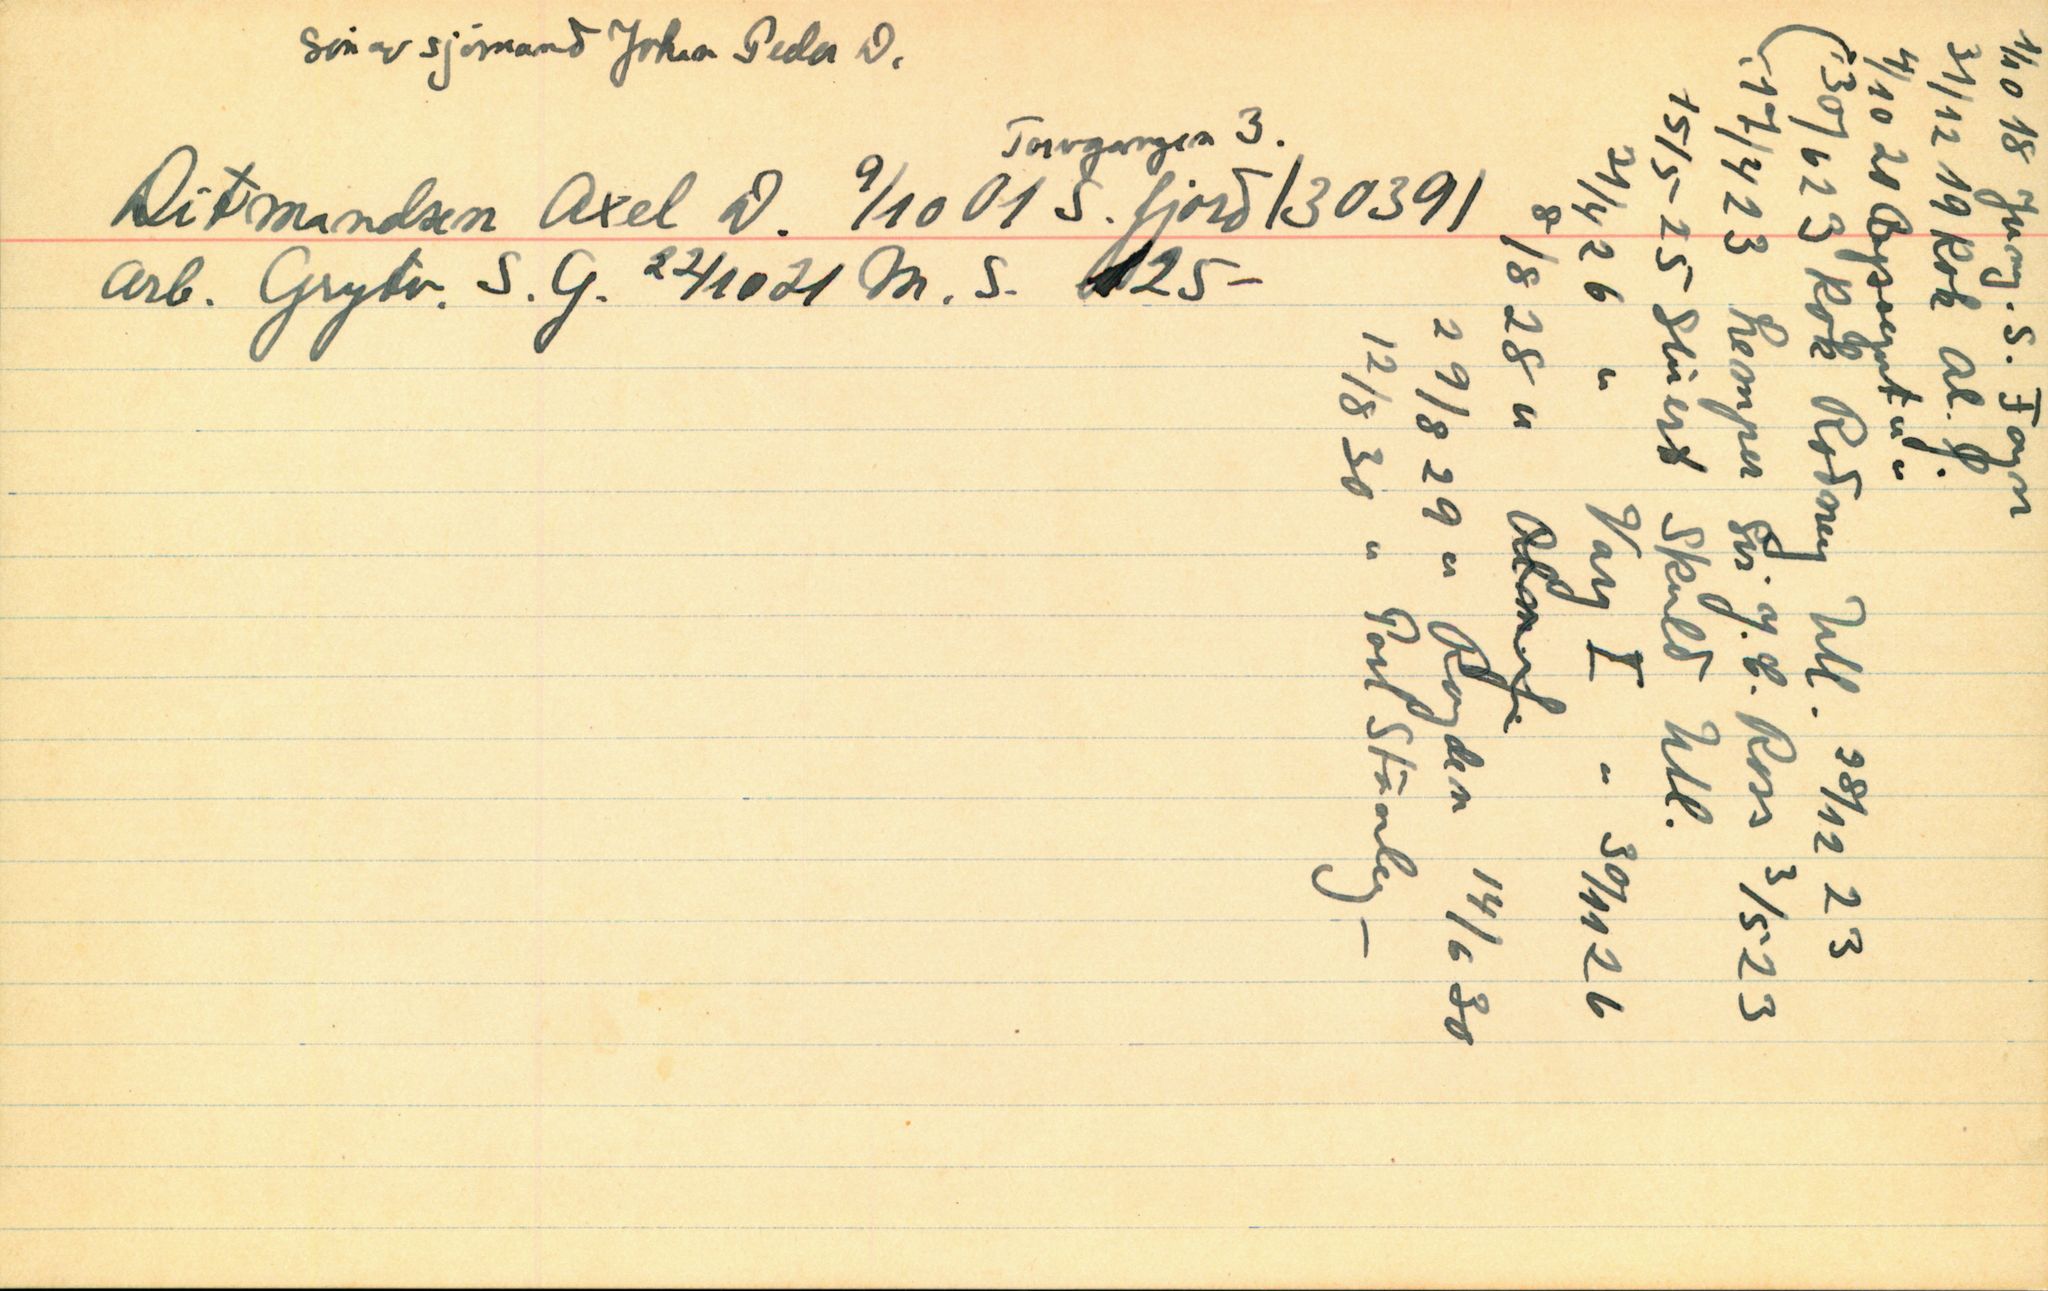 Søn av sjømand Johan Peder D.
Torvgangen 3.
Ditmandsen Axel D. 9/10 01 S. fjord /3039/
Arb. Grytv. S. G. 22/10 21 M. S. 125-
1/10 18 Jung. S. Foyn
31/12 19 Kok Al. f.
4/10 20 " "
(30/6 23 Kok Rodney Utl. 28/12 23
(17/4 23 Lemper Sir J. C. Ross 3/5 23
15/5-25 Stuert Skuld Utl.
21/4 26 " Varg I " 30/11 26
8/8 28 "
29/8 29 " Ragden 14/6 30
12/8 30 " Port Stanley -